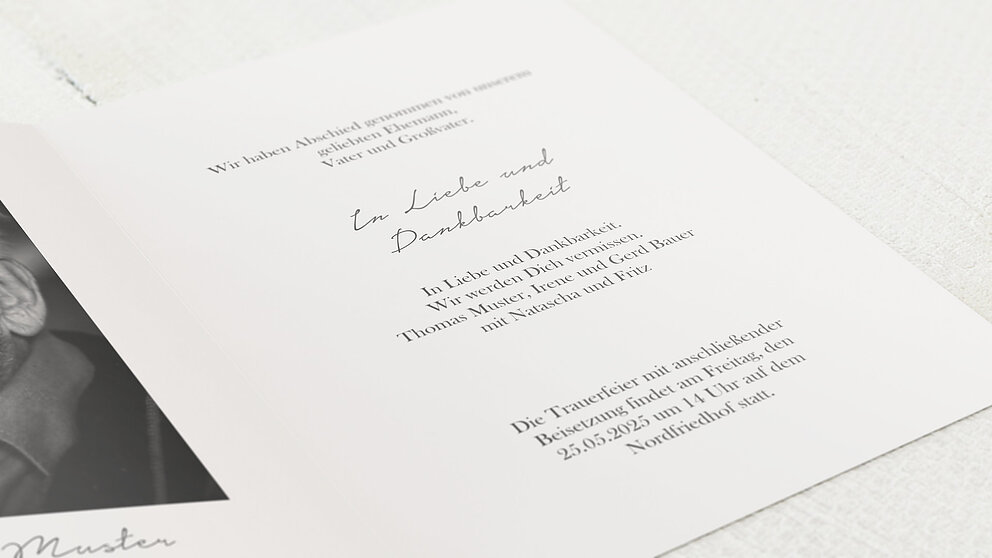 Wir haben Abschied genommen von unserem
geliebten Ehemann,
Vater und Großvater.
In Liebe und
Dankbarkeit
In Liebe und Dankbarkeit.
Wir werden Dich vermissen.
Thomas Muster, Irene und Gerd Bauer
mit Natascha und Fritz
Die Trauerfeier mit anschließender
Beisetzung findet am Freitag, den
25.05.2025 um 14 Uhr auf dem
Nordfriedhof statt.
Muster